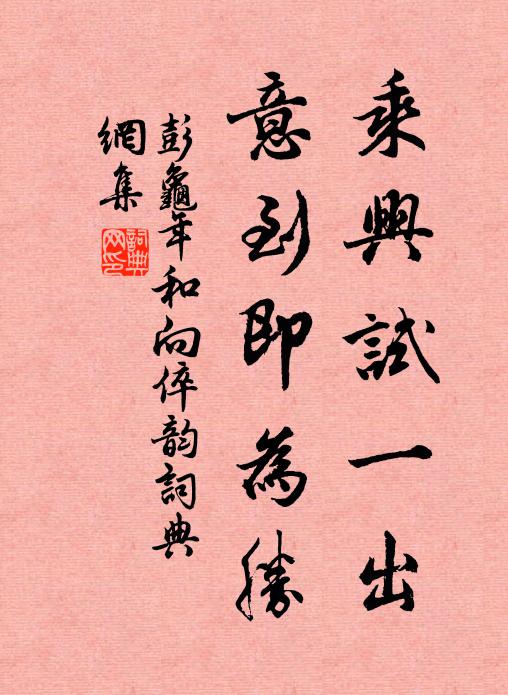 乘興試一出
意到即為勝
彭龜年和向倅韵詞典
網集
詞典
网印